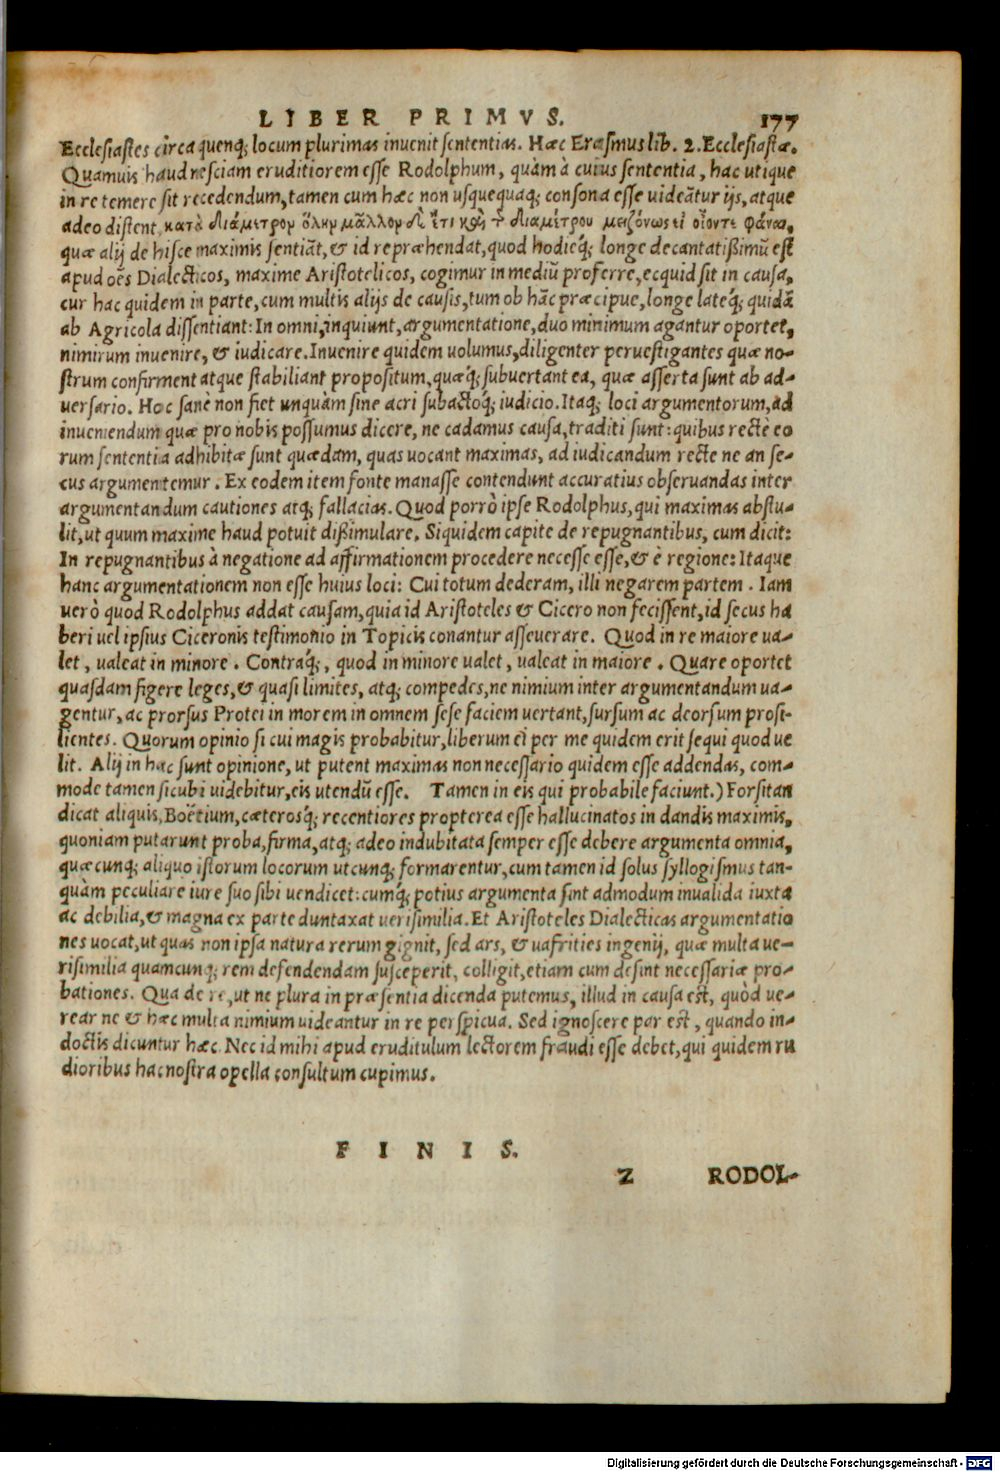 LIBER PRIMVS. 177
Ecclesiastes circa quenq; locum plurimas inuenit sententias. Hæc Erasmus lib. 2. Ecclesiastæ.
Quamuis haud nesciam eruditiorem esse Rodolphum, quàm à cuius sententia, hac utique
in re temere sit recedendum, tamen cum hæc non usquequaq; consona esse uideātur ijs, atque
adeo distent κατὰ διάμετρον
quæ alij de hisce maximis sentiāt, & id repræhendat, quod hodieq́; longe decantatißimū est
apud oēs Dialecticos, maxime Aristotelicos, cogimur in mediū proferre, ecquid sit in causa,
cur hac quidem in parte, cum multis alijs de causis, tum ob hāc præcipue, longe lateq́; quidā
ab Agricola dissentiant: In omni, inquiunt, argumentatione, duo minimum agantur oportet,
nimirum inuenire, & iudicare. Inuenire quidem uolumus, diligenter peruestigantes quæ no-
strum confirment atque stabiliant propositum, quæq́; subuertant ea, quæ asserta sunt ab ad-
uersario. Hoc sanè non fiet unquàm sine acri subactoq́; iudicio. Itaq; loci argumentorum, ad
inueniendum quæ pro nobis possumus dicere, ne cadamus causa, traditi sunt: quibus recte eo
rum sententia adhibitæ sunt quædam, quas uocant maximas, ad iudicandum recte ne an se-
cus argumentemur. Ex eodem item fonte manasse contendunt accuratius obseruandas inter
argumentandum cautiones atq; fallacias. Quod porrò ipse Rodolphus, qui maximas abstu-
lit, ut quum maxime haud potuit dißimulare. Siquidem capite de repugnantibus, cum dicit:
In repugnantibus à negatione ad affirmationem procedere necesse esse, & è regione: Itaque
hanc argumentationem non esse huius loci: Cui totum dederam, illi negarem partem. Iam
uerò quod Rodolphus addat causam, quia id Aristoteles & Cicero non fecissent, id secus ha
beri uel ipsius Ciceronis testimonio in Topicis conantur asseuerare. Quod in re maiore ua-
let, ualeat in minore. Contraq́;, quod in minore ualet, ualeat in maiore. Quare oportet
quasdam figere leges, & quasi limites, atq; compedes, ne nimium inter argumentandum ua-
gentur, ac prorsus Protei in morem in omnem sese faciem uertant, sursum ac deorsum prosi-
lientes. Quorum opinio si cui magis probabitur, liberum ei per me quidem erit sequi quod ue
lit. Alij in hac sunt opinione, ut putent maximas non necessario quidem esse addendas, com-
mode tamen sicubi uidebitur, eis utendū esse. Tamen in eis qui probabile faciunt.) Forsitan
dicat aliquis, Boëtium, cæterosq́; recentiores propterea esse hallucinatos in dandis maximis,
quoniam putarunt proba, firma, atq; adeo indubitata semper esse debere argumenta omnia,
quæcunq; aliquo istorum locorum utcunq; formarentur, cum tamen id solus syllogismus tan-
quàm peculiare iure suo sibi uendicet: cumq́; potius argumenta sint admodum inualida iuxta
ac debilia, & magna ex parte duntaxat uerisimilia. Et Aristoteles Dialecticas argumentatio
nes uocat, ut quas non ipsa natura rerum gignit, sed ars, & uafrities ingenij, quæ multa ue-
risimilia quamcunq; rem defendendam susceperit, colligit, etiam cum desint necessariæ pro-
bationes. Qua de re, ut ne plura in præsentia dicenda putemus, illud in causa est, quòd ue-
rear ne & hæc multa nimium uideantur in re perspicua. Sed ignoscere par est, quando in-
doctis dicuntur hæc. Nec id mihi apud eruditulum lectorem fraudi esse debet, qui quidem ru
dioribus hac nostra opella consultum cupimus.
FINIS.
Z RODOL-
Digitalisierung gefördert durch die Deutsche Forschungsgemeinschaft - DFG